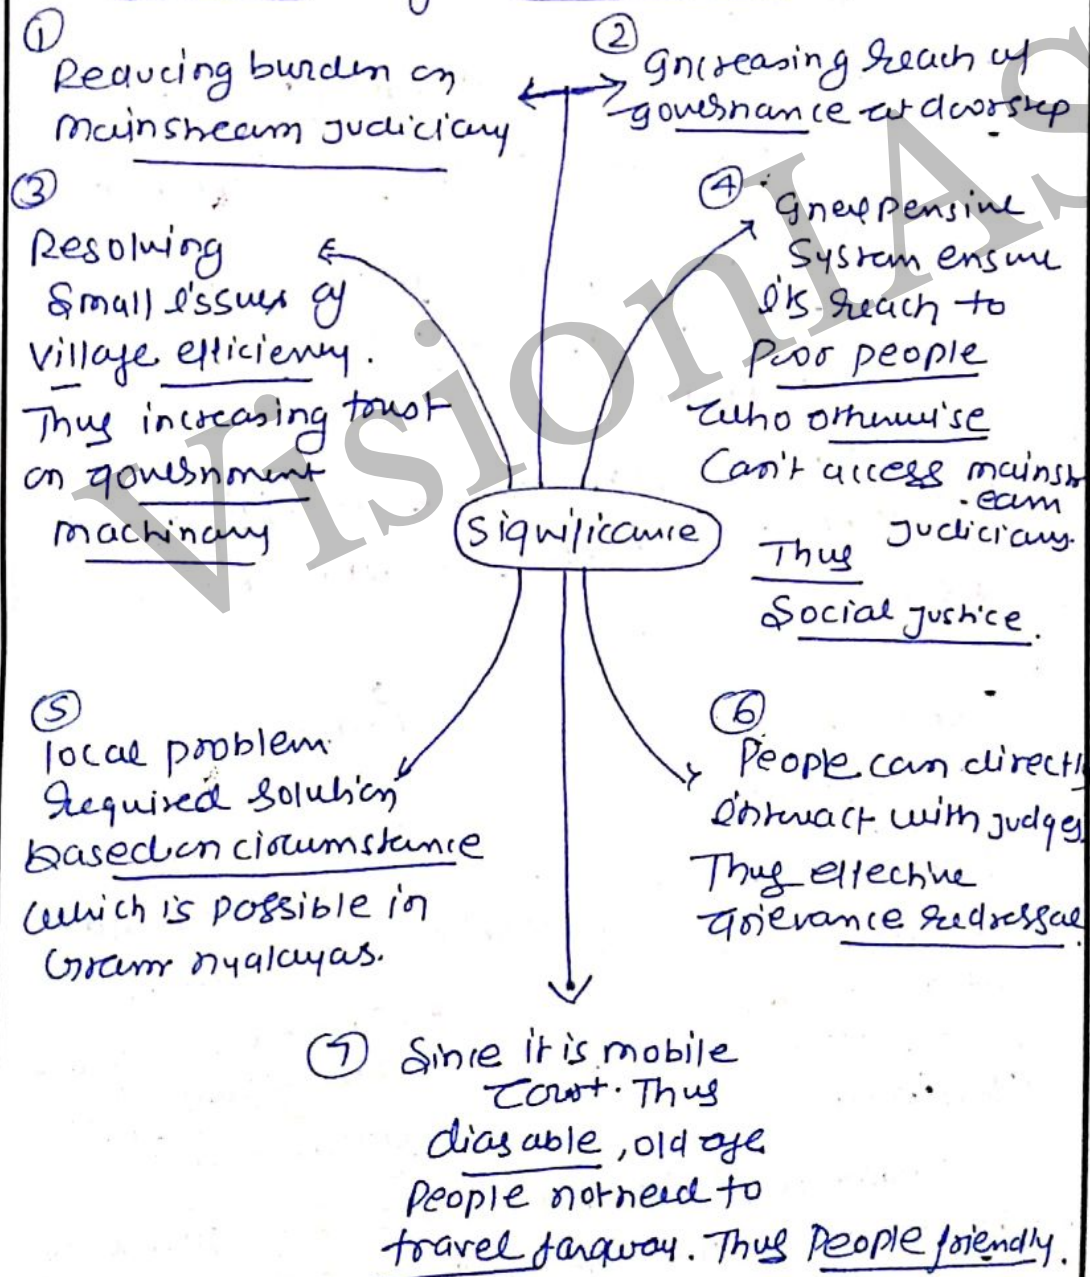 ①
Reducing burden on
mainstream judiciary
②
Increasing reach of
governance at doorstep
③
Resolving
Small issues of
village efficiency.
Thus increasing trust
on government
machinary
④
Inexpensive
System ensure
it's reach to
Poor people
who otherwise
Can't access mainstr
-eam
Judiciary.
Thus
Social Justice.
Significance
⑤
local problem
Required solution
based on circumstance
which is possible in
Gram nyalayas.
⑥
People can directl
interact with judges
Thus effective
Grievance redressal
⑦ Since it is mobile
Court. Thus
diasable, old age
People not need to
travel faraway. Thus People friendly.
VisionIAS